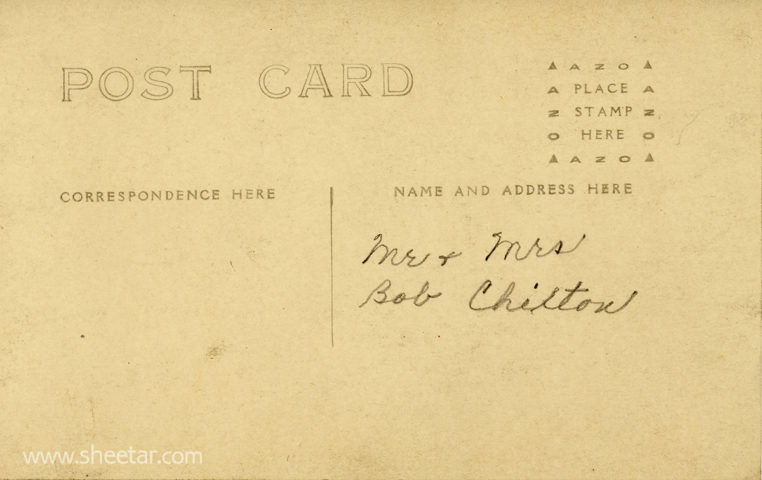 POST CARD
▲ AZO ▲
A PLACE A
Z STAMP Z
O HERE O
▲ AZO ▲
CORRESPONDENCE HERE
NAME AND ADDRESS HERE
Mr + Mrs
Bob Chilton
www.sheetar.com